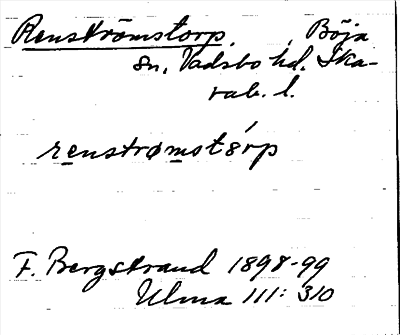 Renströmstorp. , Böja
sn, Vadsbo hd. Ska-
rab. l.
renstrømstórp
F. Bergstrand 1898-99
Ulma 111: 310